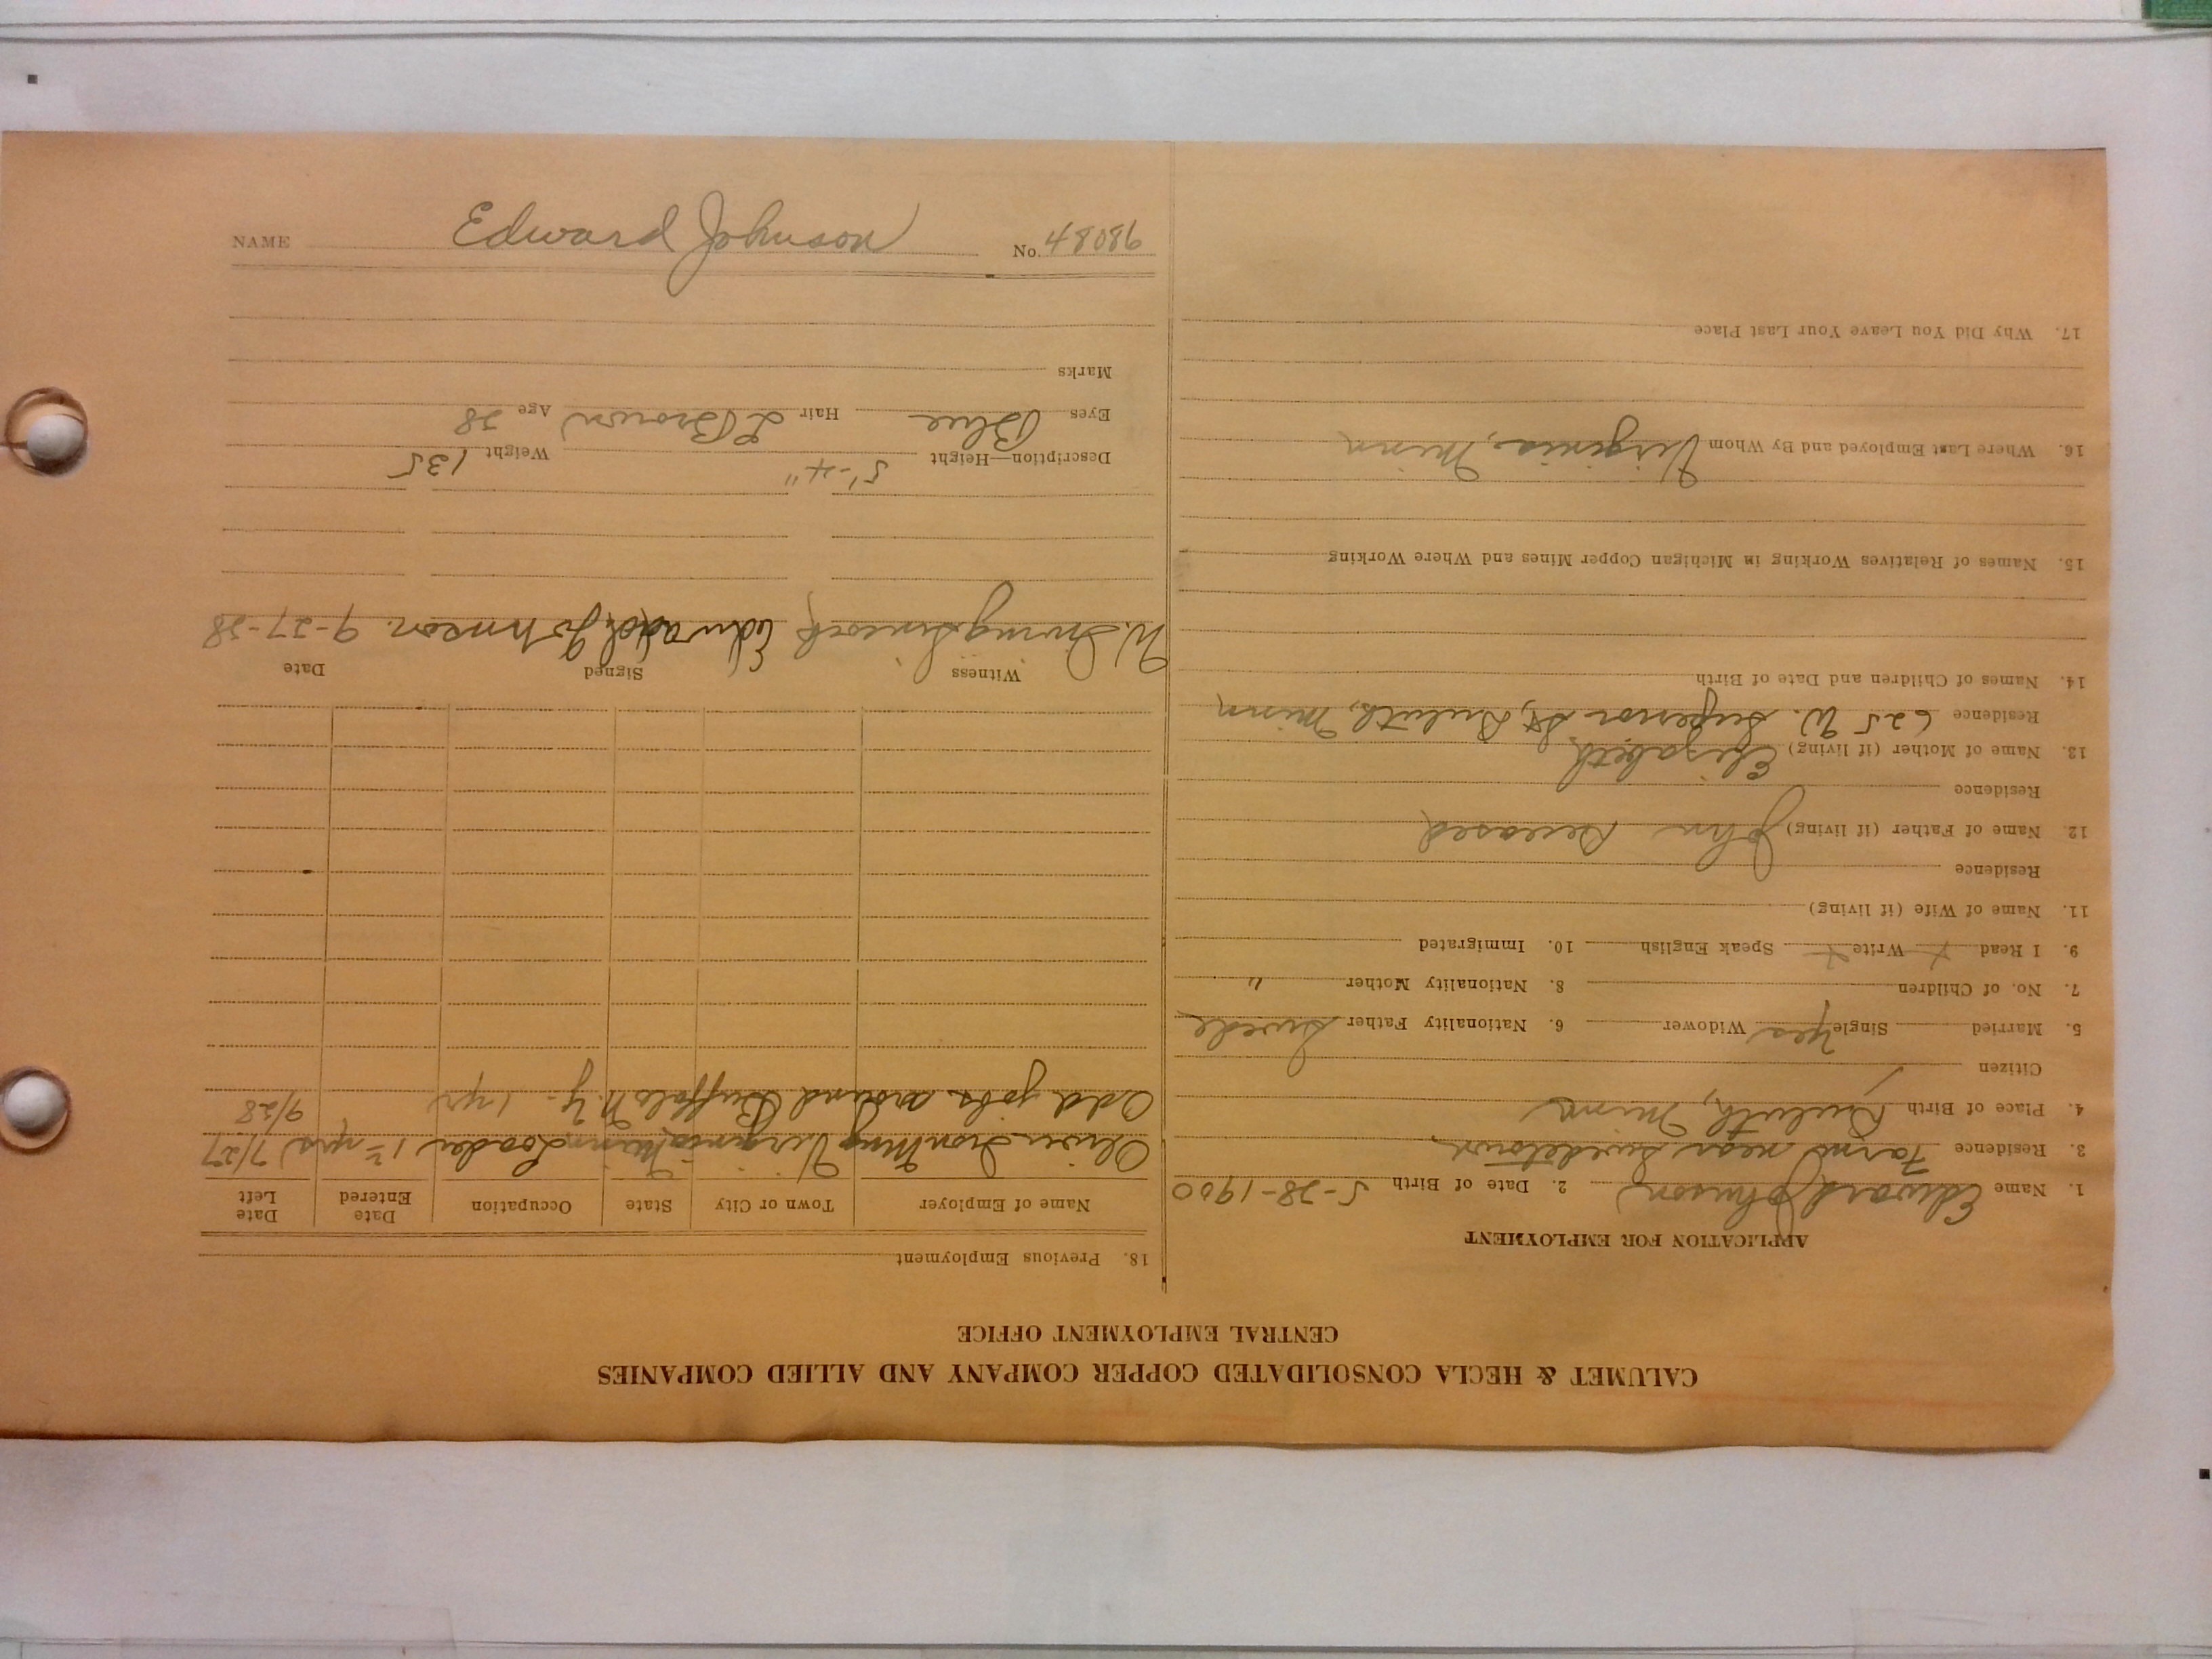 NAME Edward Johnson No. 48086
CALUMET & HECLA CONSOLIDATED COPPER COMPANY AND ALLIED COMPANIES
CENTRAL EMPLOYMENT OFFICE
APPLICATION FOR EMPLOYMENT
1. Name Edward Johnson 2. Date of Birth 5-28-1900
3. Residence Farm near Swedetown
4. Place of Birth Duluth, Minn
Citizen
5. Married Single Yes Widower 6. Nationality Father Swede
7. No. of Children 8. Nationality Mother "
9. I Read x Write x Speak English 10. Immigrated
11. Name of Wife (if living)
Residence
12. Name of Father (if living) John Deceased
Residence
13. Name of Mother (if living) Elizabeth
Residence 625 W. Superior St, Duluth, Minn
14. Names of Children and Date of Birth
15. Names of Relatives Working in Michigan Copper Mines and Where Working
16. Where Last Employed and By Whom Virginia, Minn
17. Why Did You Leave Your Last Place
18. Previous Employment
Name of Employer Town or City State Occupation Date Entered Date Left
Oliver Iron Mng Virginia, Minn Loader 1½ yrs 7/27
Odd jobs around Buffalo N.Y. - 1 yr 9/28
Witness Signed Date
W. Irving Edward Johnson. 9-27-28
Description—Height 5'-4" Weight 135
Eyes Blue Hair L Brown Age 28
Marks